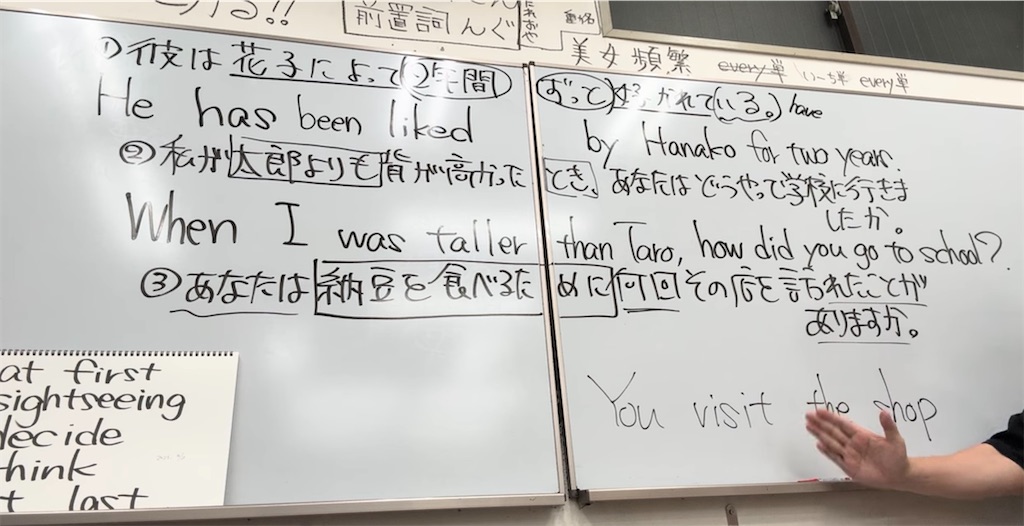 ける!!
前置詞 んぐ
美女頻繁 every単 い~ち単 every単
①彼は花子によって②年間ずっと好かれている。 have
He has been liked by Hanako for two years.
②私が太郎よりも背が高かったとき、あなたはどうやって学校に行きま
したか。
When I was taller than Taro, how did you go to school?
③あなたは納豆を食べるために何回その店を訪れたことが
ありますか。
You visit the shop
at first
sightseeing
decide
hink
t last